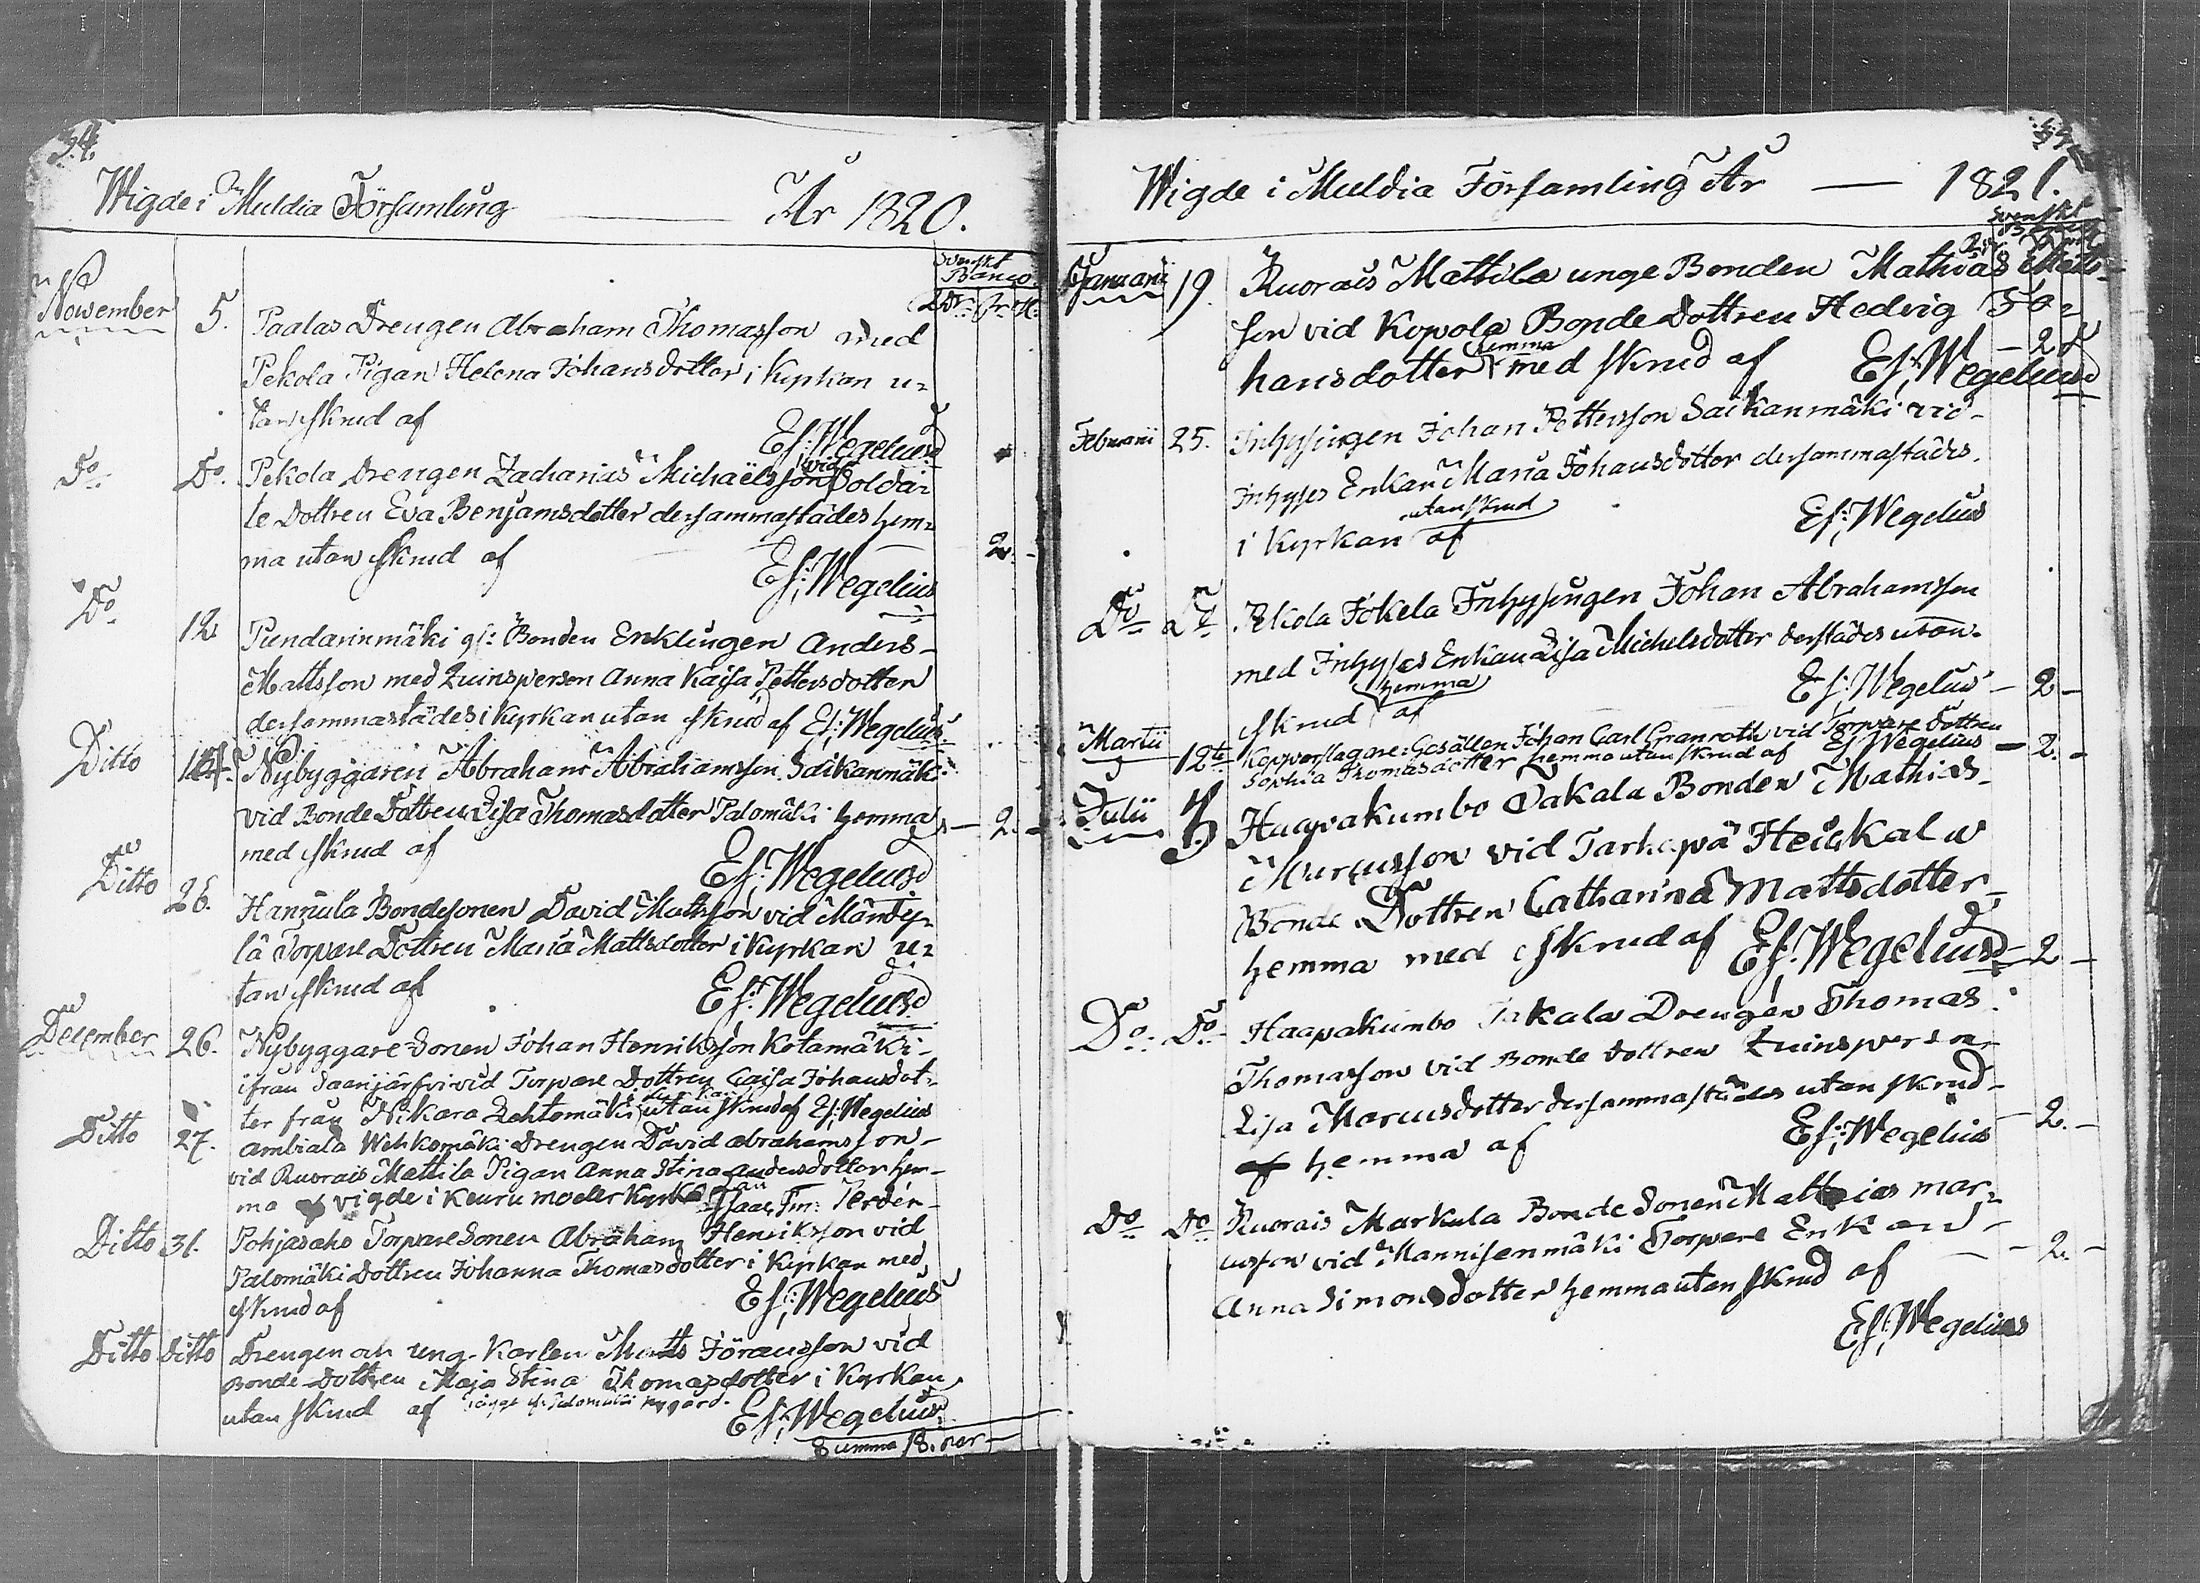 34.
Wigde i Muldia Församling — År 1820.
Svenskt
Banco
November 5. Paalas Drengen Abraham Thomasson med
Pekola Pigan Helena Johansdotter i Kyrkan u=
tan skrud af Es: Wegelius
Do Do. Pekola Drengen Zacharias Michaëlsson vid Solda=
te Dottren Eva Benjamsdotter dersammastädes hem=
ma utan skrud af 2. -
Es: Wegelius
Do 12 Pundarinmäki gs: Bonden Enklingen Anders
Mattsson med Quinsperson Anna Kaisa Pettersdotter
dersammastädes i Kyrkan utan skrud af Es: Wegelius
Ditto 14. Nybyggaren Abraham Abrahamsson Saikanmäki
vid Bonde Dottren Lisa Thomasdotter Palomäki hemma — 2. -
med skrud af Es: Wegelius
Ditto 26. Hannula Bondesonen David Mattsson vid Mänty=
lä Torpare Dottren Maria Mattsdotter i Kyrkan u=
tan skrud af Es: Wegelius
December 26. Nybyggare Sonen Johan Henriksson Kotamäki
ifrån Saarijärfvi vid Torpare Dottren Caisa Johansdot=
ter från Nikara Lehtomäki i Kyrkan utan skrud af Es: Wegelius
Ditto 27. Ambiala Wehkomäki Drengen David Abrahamsson
vid Ruorais Mattila Pigan Anna Stina Andersdotter hem=
ma vigde i Keuru moder Kyrkan Isaac Tm:
Ditto 31. Pohjasaho Torpare Sonen Abraham Henriksson vid
Palomäki Dottren Johanna Thomasdotter i Kyrkan med
skrud af Es: Wegelius
Ditto Ditto Drengen och ung-Karlen Matts Göransson vid
Bonde Dottren Maja Stina Thomasdotter i Kyrkan
utan skrud af Es: Wegelius
Summa 18. par
Wigde i Muldia Församling År — 1821.
Svenskt
Januarii 19. Ruorais Mattila unge Bonden Mathias Matts=
son vid Kopola Bonde Dottren Hedvig Jo=
hansdotter hemma med skrud af — 2
Es: Wegelius
Februarii 25. Inhysingen Johan Pettersson Saikanmäki vid
Inhyses Enkan Maria Johansdotter dersammastädes
i Kyrkan utan skrud af Es: Wegelius
Do Do Pekola Jokela Inhysingen Johan Abrahamsson
med Inhyses Enkan Lisa Michelsdotter derstädes utan
skrud hemma af Es: Wegelius — 2 -
Martii 12te Kopparslagare: Gesällen Johan Carl Granroth vid Torpare Dottren
Sophia Thomasdotter hemma utan skrud af Es Wegelius — 2. -
Julii Haapakumbo Takala Bonden Mathias
Marcusson vid Tarhapä Heickala
Bonde Dottren Catharina Mattsdotter
hemma med skrud af Es: Wegelius — 2 -
Do: Do Haapakumbo Takala Drengen Thomas
Thomasson vid Bonde Dottren Quinsperson
Lisa Marcusdotter dersammastädes utan skrud
hemma af Es: Wegelius — 2. -
Do Do Ruorais Markula Bonde Sonen Mathias Mar=
cusson vid Mannisenmäki Torpare Enkan
Anna Simonsdotter hemma utan skrud af — 2. -
Es: Wegelius